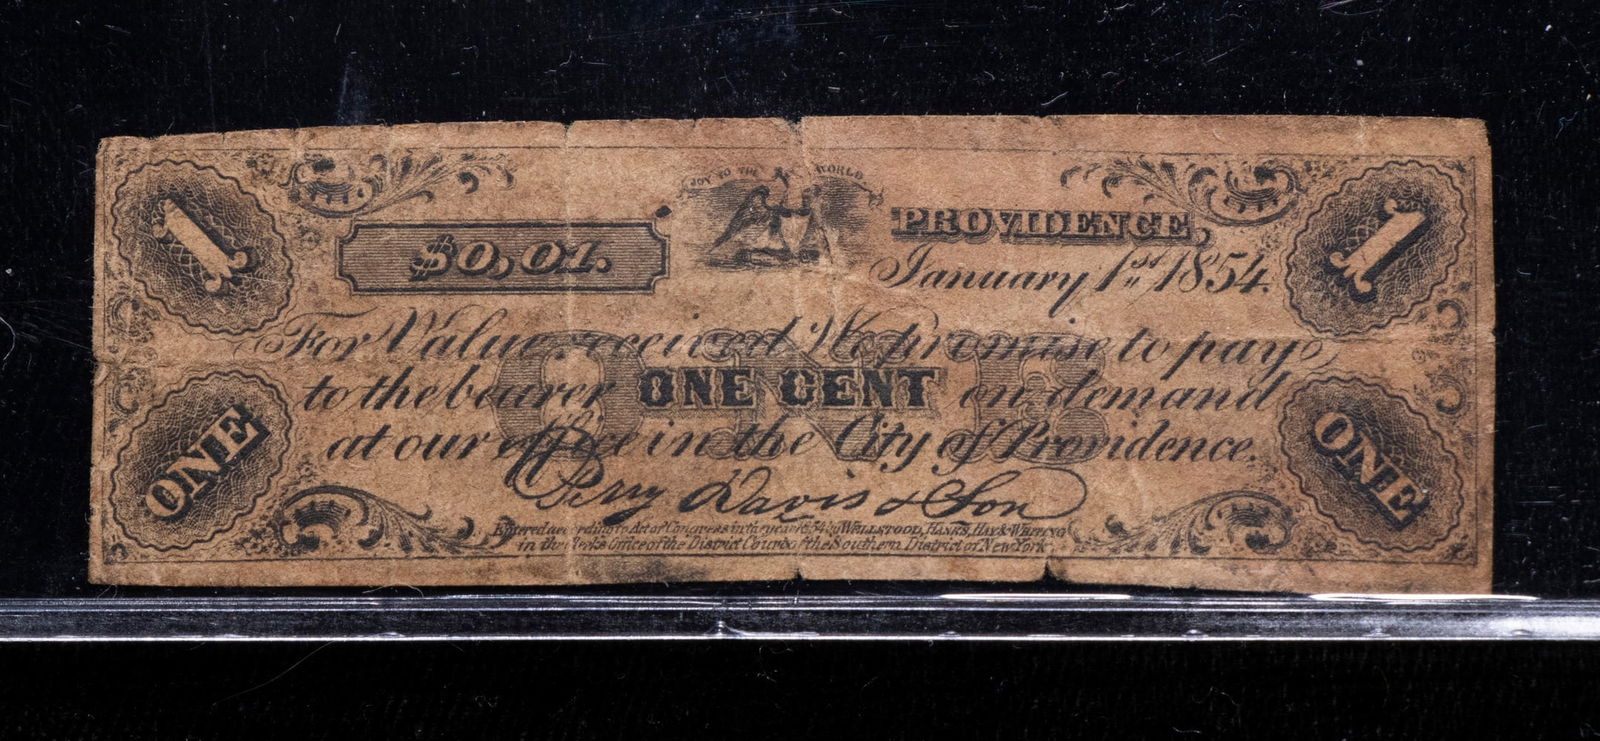 1
JOY TO THE WORLD
$0,01.
PROVIDENCE,
January 1st 1854.
1
For Value received We promise to pay
to the bearer ONE CENT on demand
ONE
at our office in the City of Providence.
ONE
ONE
Perry Davis & Son
Entered according to Act of Congress in the year 1854 by WELLSTOOD, HANKS, HAY & WHITING
in the Clerks Office of the District Court of the Southern District of New York